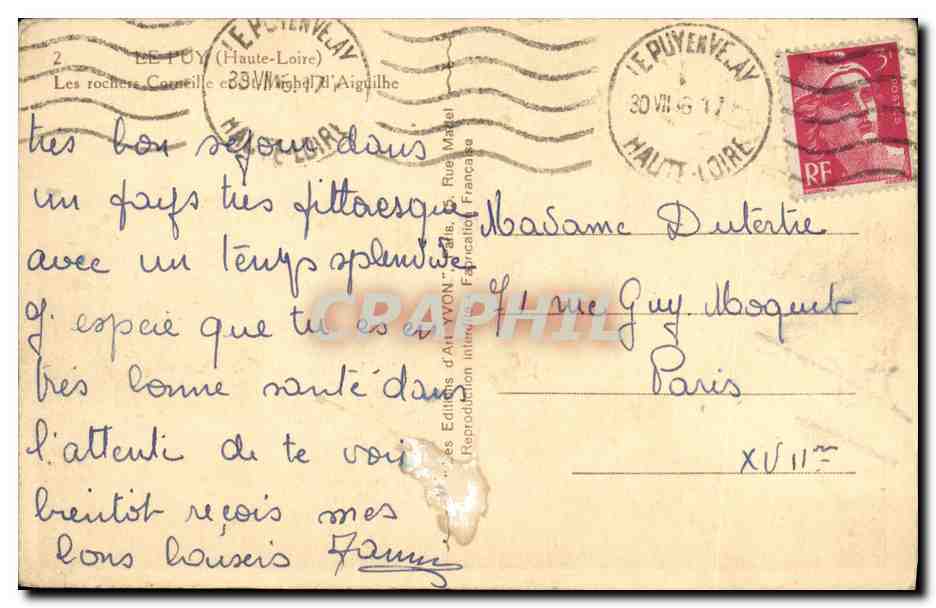 2 LE PUY (Haute-Loire)
Les rochers Corneille et St. Michel d'Aiguilhe
très bon séjour dans
un pays très pittoresque
avec un temps splendide
J'espère que tu es en
très bonne santé dans
l'attente de te voir
bientôt reçois mes
bons baisers
LE PUY EN VELAY
30 VII
HAUTE-LOIRE
LE PUY EN VELAY
30 VII
HAUTE-LOIRE
RF
Les Editions d'Art "YVON" Paris, 15, Rue Martel
Reproduction interdite Fabrication Française
CRAPHIL
Madame Dutertre
71 rue Guy Moquet
Paris
XVII me